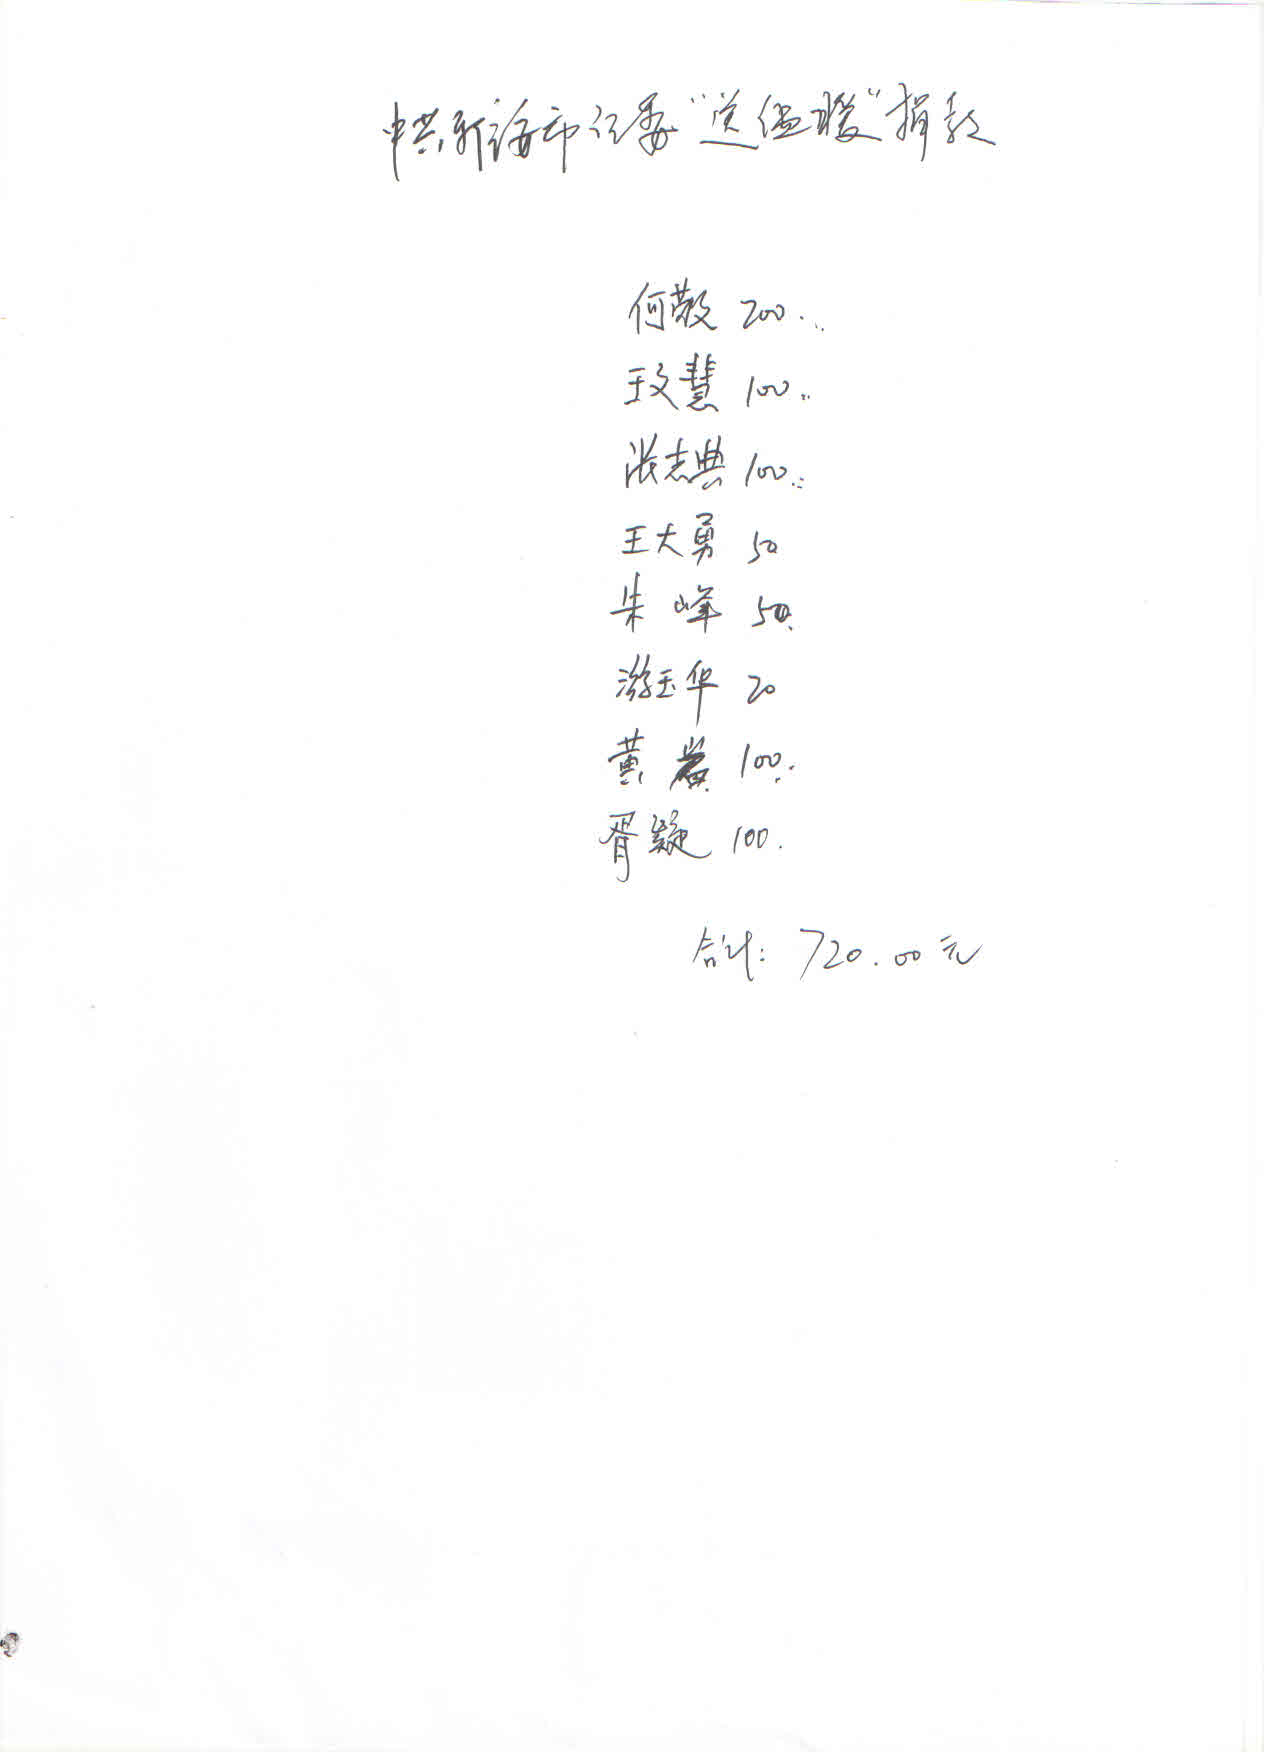 中共新洛市纪委“送温暖”捐款
何敬 200.
王文慧 100.
张志典 100.
王大勇 50
朱峰 50.
游玉华 20
黄 100.
胥凝 100.
合计: 720.00元